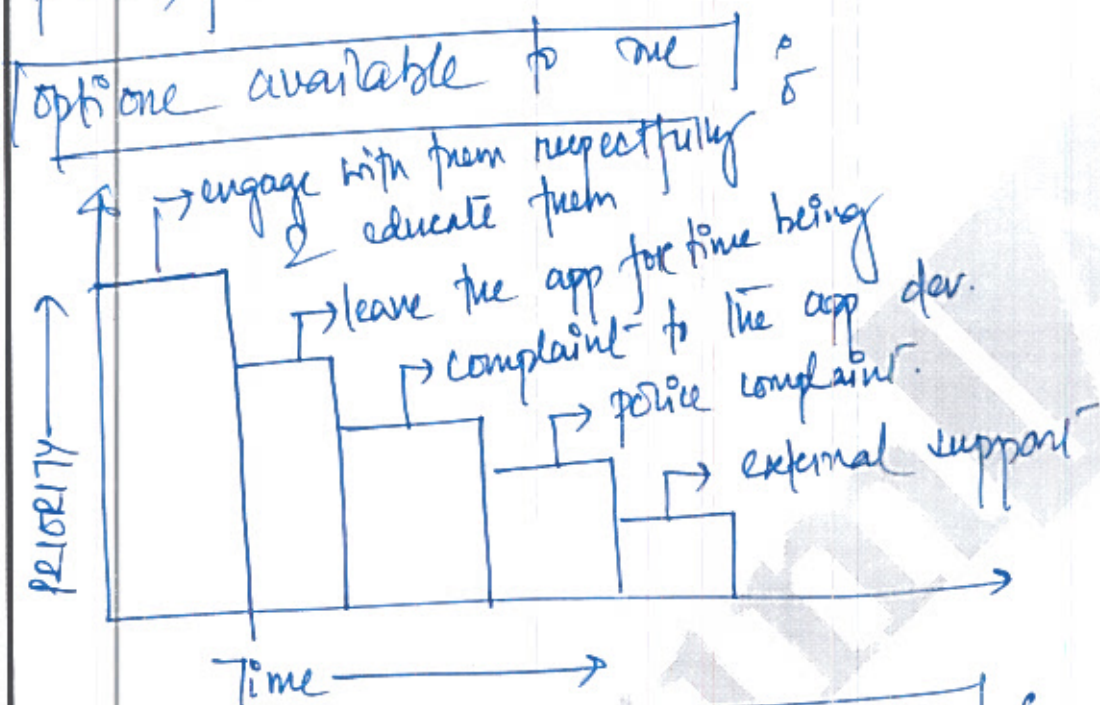 options available to me :
→ engage with them respectfully
& educate them
→ leave the app for time being
→ complaint to the app dev.
→ police complaint.
→ external support
PRIORITY →
Time →